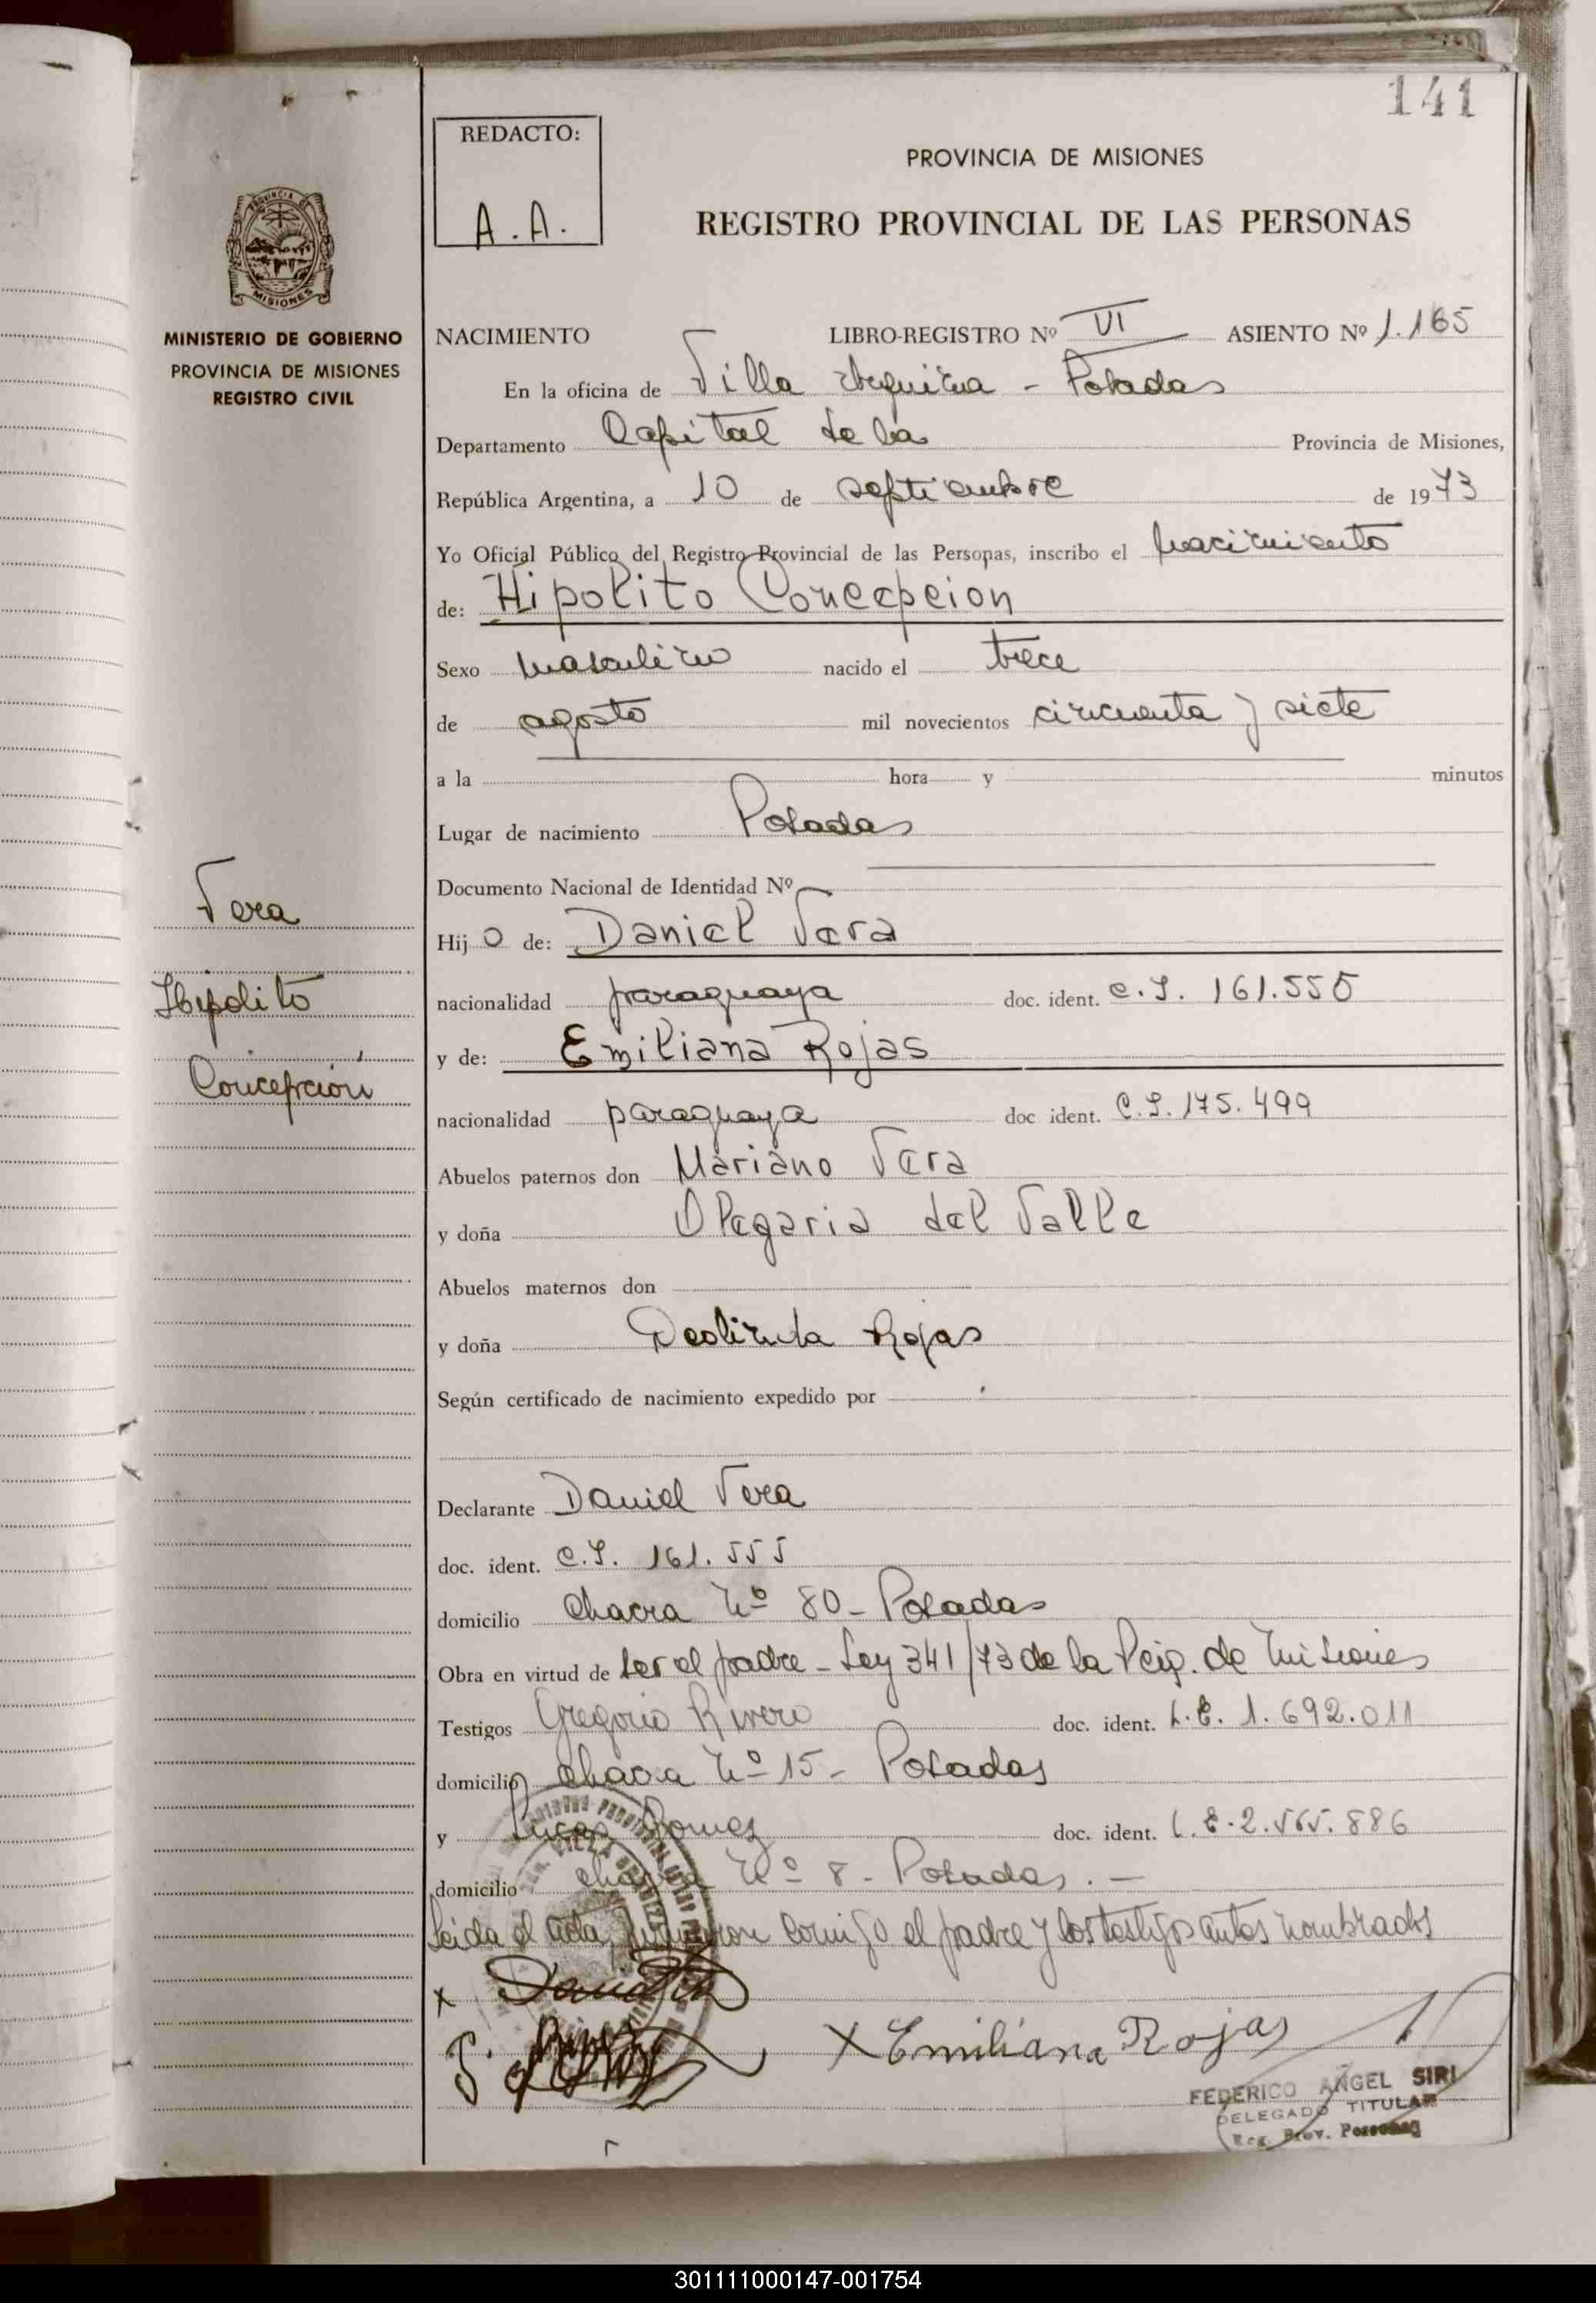 141
REDACTO:
A.A.
PROVINCIA DE MISIONES
REGISTRO PROVINCIAL DE LAS PERSONAS
MISIONES
MINISTERIO DE GOBIERNO
PROVINCIA DE MISIONES
REGISTRO CIVIL
NACIMIENTO LIBRO-REGISTRO Nº VI ASIENTO Nº 1.165
En la oficina de Villa Urquiza - Posadas
Departamento Capital de la Provincia de Misiones,
República Argentina, a 10 de septiembre de 1973
Yo Oficial Público del Registro Provincial de las Personas, inscribo el nacimiento
de: Hipolito Concepcion
Sexo masculino nacido el trece
de agosto mil novecientos cincuenta y siete
a la hora y minutos
Lugar de nacimiento Posadas
Documento Nacional de Identidad Nº
Vera
Hijo de: Daniel Vera
Hipolito
nacionalidad paraguaya doc. ident. C.I. 161.555
y de: Emiliana Rojas
Concepción
nacionalidad paraguaya doc ident. C.I. 175.499
Abuelos paternos don Mariano Vera
y doña Olegaria del Valle
Abuelos maternos don
y doña Deolinda Rojas
Según certificado de nacimiento expedido por
Declarante Daniel Vera
doc. ident. C.I. 161.555
domicilio Chacra Nº 80 - Posadas
Obra en virtud de ser el padre - Ley 341/73 de la Pcia. de Misiones
Testigos Gregorio Rivero doc. ident. L.E. 1.692.011
domicilio Chacra Nº 15 - Posadas
y Lucas Gomez doc. ident. L.E. 2.565.886
domicilio chacra Nº 8 - Posadas. -
Leida el acta, firmaron conmigo el padre y los testigos antes nombrados
X
X Emiliana Rojas
FEDERICO ANGEL SIRI
DELEGADO TITULAR
Reg. Prov. Personas
301111000147-001754